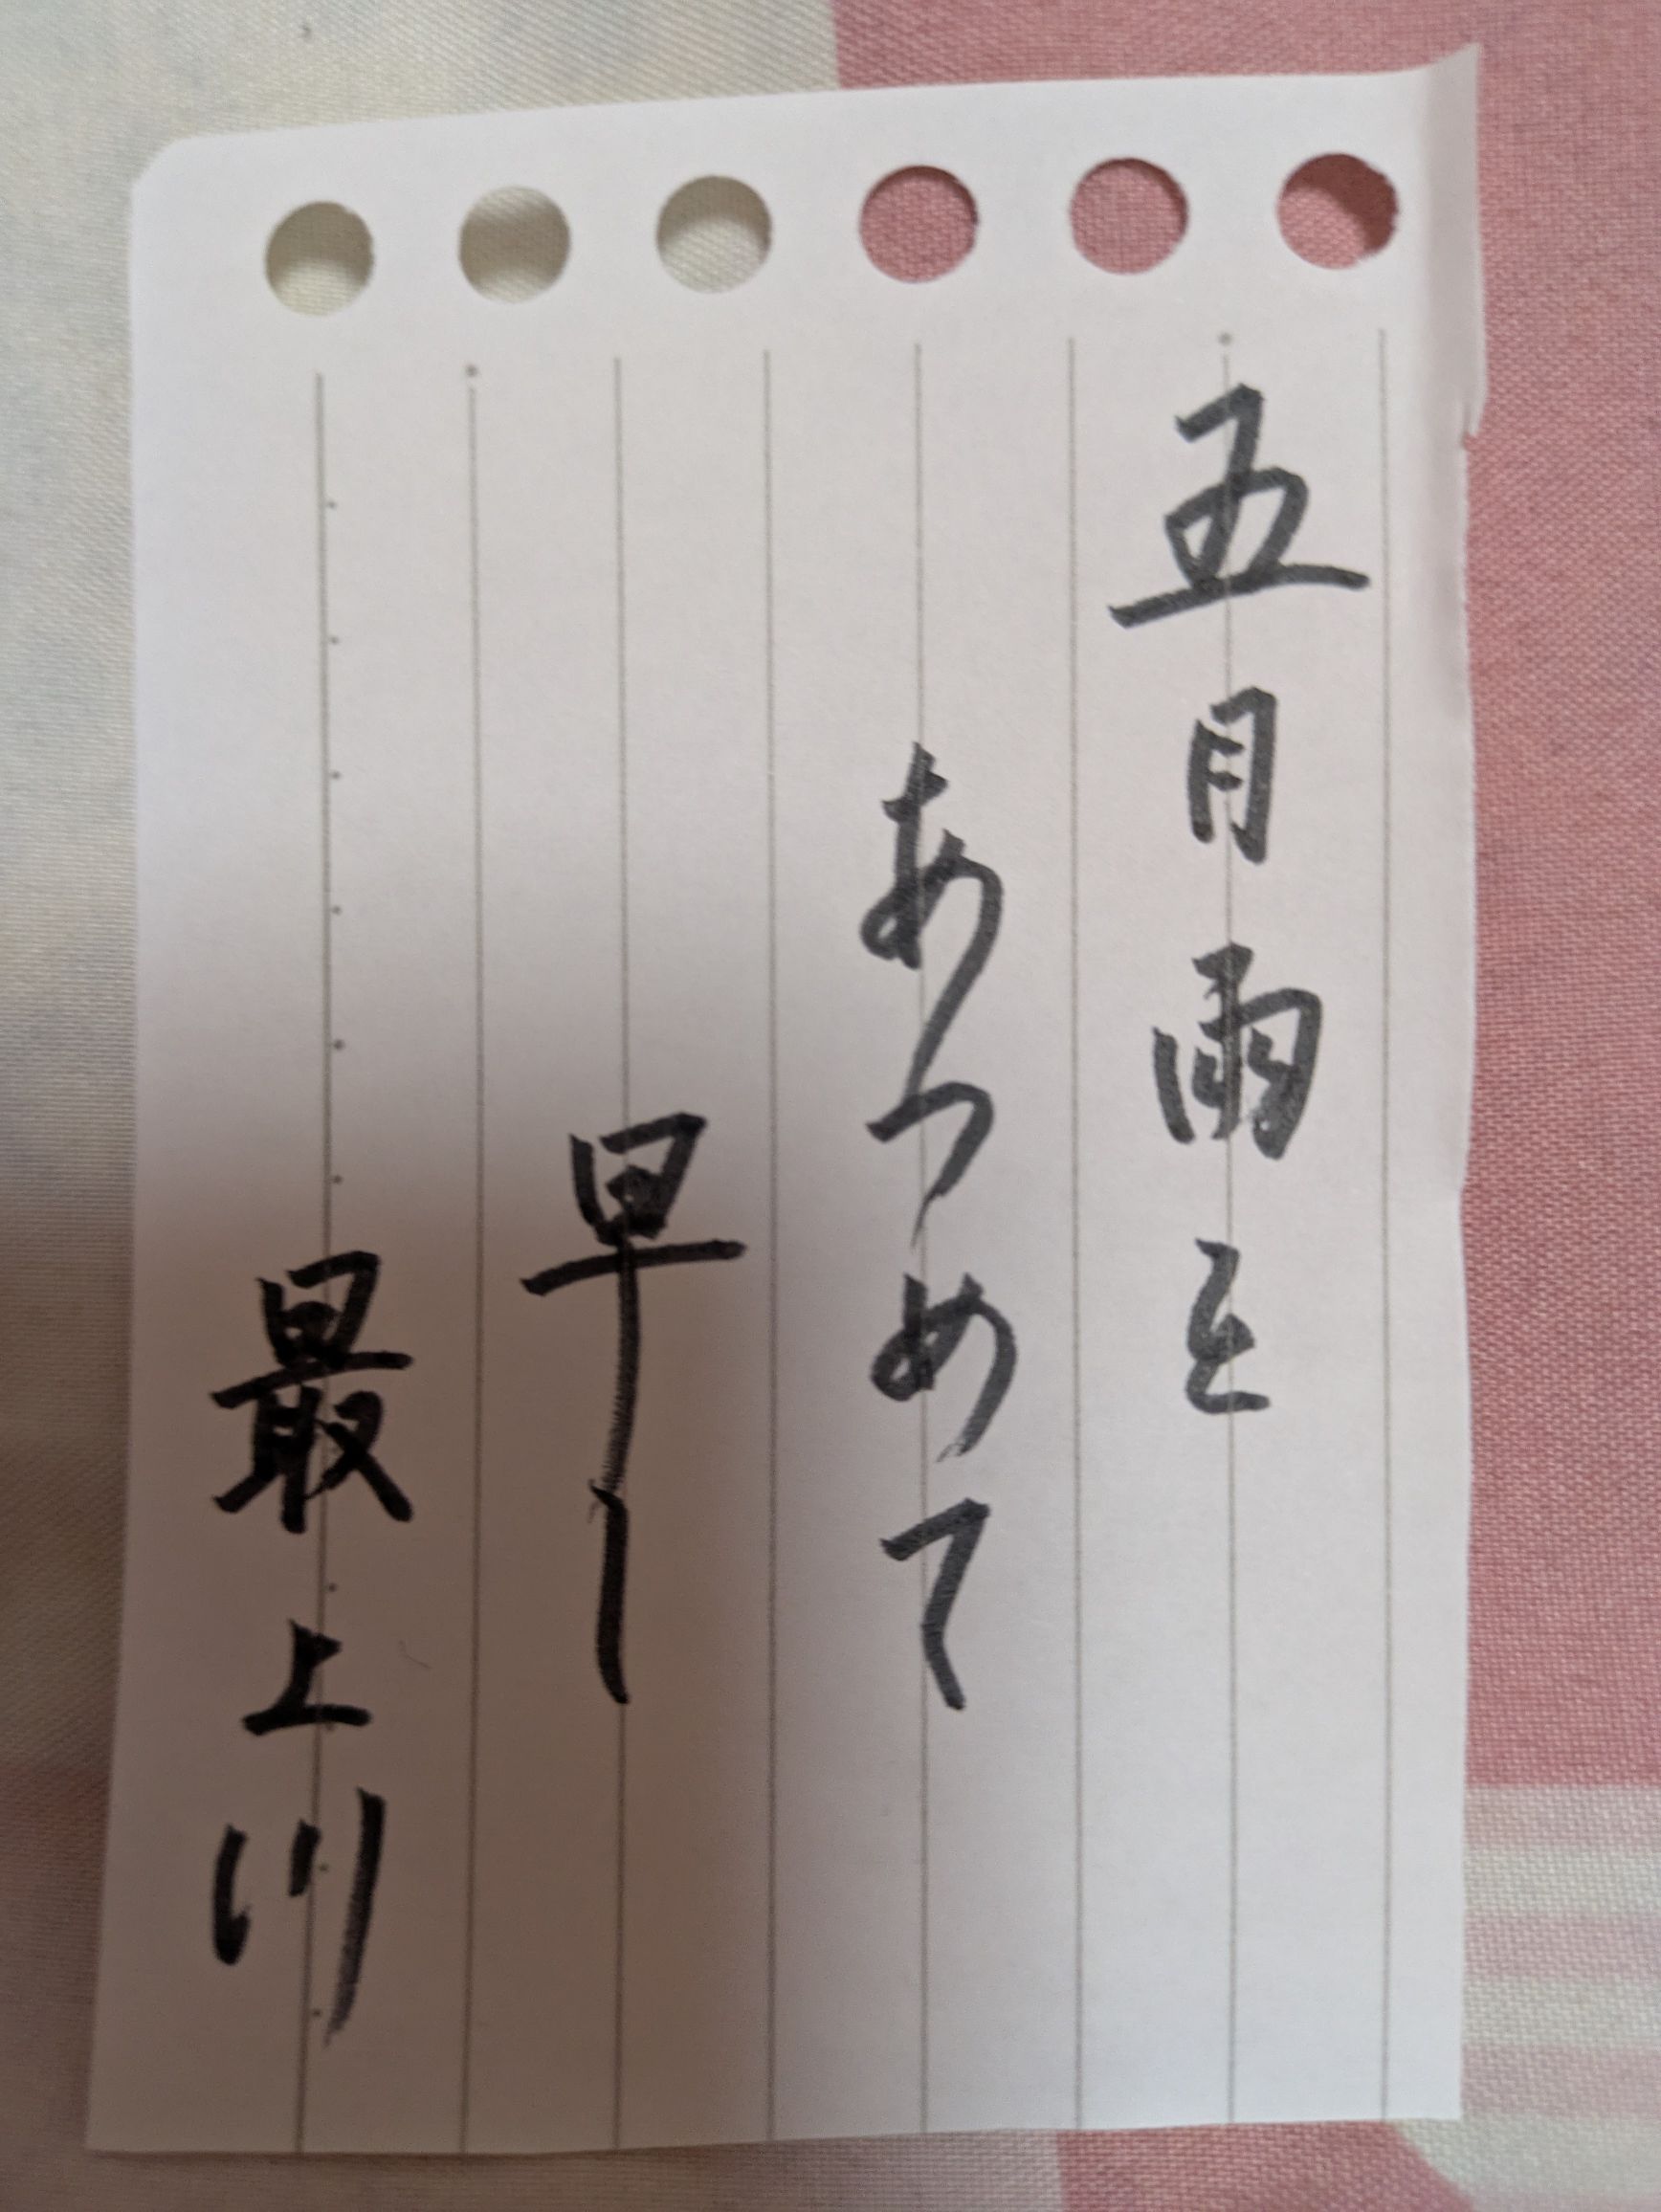 五月雨を
あつめて
早し
最上川